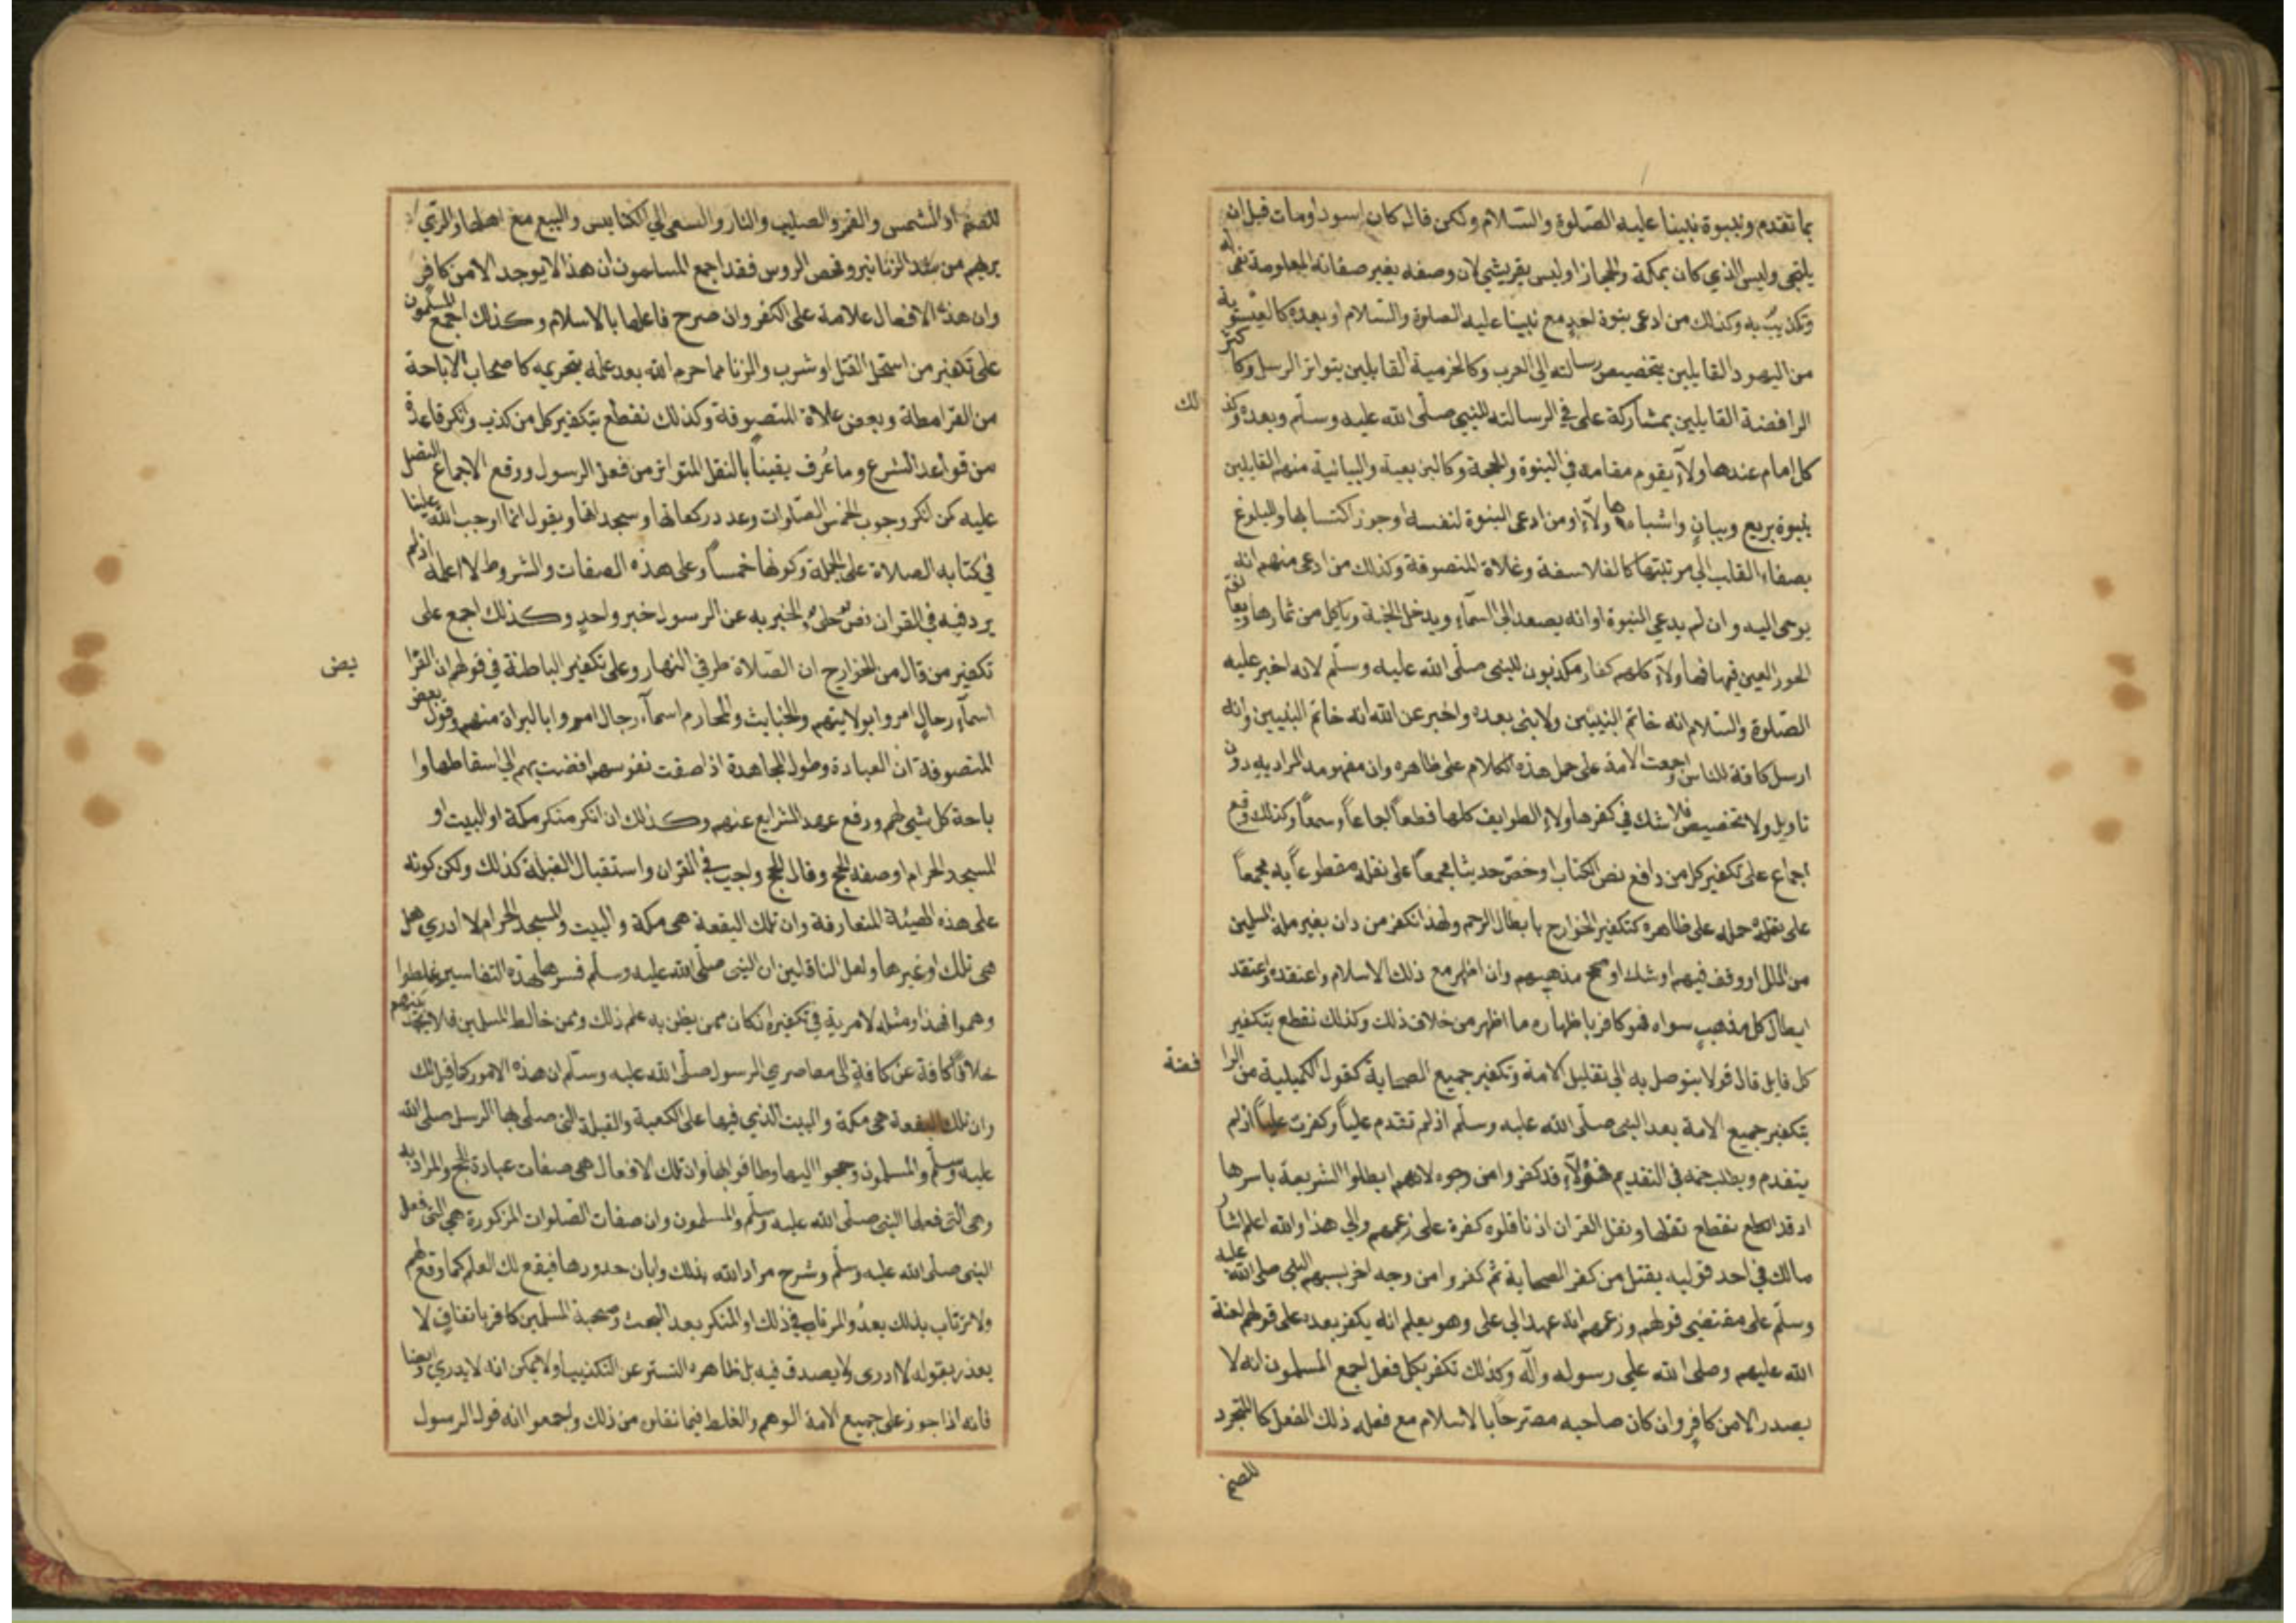 بما تقدم ونبوة نبينا عليه الصلوة والسلام ولكن قال كان اسود او مات قبل ان
يلتحي وليس الذي كان بمكة والحجاز او ليس بقريشي لان وصفه بغير صفاته المعلومة نفي له
وتكذيب به وكذلك من ادعى بنوة احد مع نبينا عليه الصلوة والسلام او بعده كالعيسوية
من اليهود القايلين بتخصيص رسالته الى العرب وكالخرمية القايلين بتواتر الرسل وكاكثر
الرافضة القايلين بمشاركة على في الرسالته للنبي صلى الله عليه وسلم وبعده وكذلك
كل امام عند هاولآء يقوم مقامه في النبوة والحجة وكالبزيعية والبيانية منهم القايلين
بنبوة بزيع وبيان واشباه هاولآء او من ادعى النبوة لنفسه او جوز اكتسابها والبلوغ
بصفاء القلب الى مرتبتها كالفلاسفة وغلاة المتصوفة وكذلك من ادعى منهم انه
يوحى اليه وان لم يدعي النبوة او انه يصعد الى السمآء ويدخل الجنة وياكل من ثمارها ويعانق
الحور العين فيها فهاولآء كلهم كفار مكذبون للنبى صلى الله عليه وسلم لانه اخبر عليه
الصلوة والسلام انه خاتم النبيين ولا نبى بعده واخبر عن الله انه خاتم النبيين وانه
ارسل كافة للناس واجمعت الامة على حمل هذه الكلام على ظاهره وان مفهومه المراد به دون
تاويل ولا تخصيص فلا شك في كفر هاولاء الطوايف كلها قطعاً اجماعاً وسمعاً وكذلك وقع
اجماع على تكفير كل من دافع نص الكتاب او خص حديثا مجمعاً على نقله مقطوعاً به مجمعاً
على نقله حمله على ظاهره كتكفير الخوارج بابطال الرجم ولهذا نكفر من دان بغير ملة المسلمين
من الملل او وقف فيهم او شك او صحح مذهبهم وان اظهر مع ذلك الاسلام واعتقده واعتقد
ابطال كل مذهب سواه فهو كافر باظهاره ما اظهر من خلاف ذلك وكذلك نقطع بتكفير
كل قايل قال قولا يتوصل به الى تقليل الامة وتكفير جميع الصحابة كقول الكميلية من الرافضة
بتكفير جميع الامة بعد النبى صلى الله عليه وسلم اذ لم تقدم علياً وكفرت علياً اذ لم
يتقدم ويطلب حقه في التقديم فهؤلآء قد كفروا من وجوه لانهم ابطلوا الشريعة باسرها
اذ قد انقطع نقلها ونقل القران اذ ناقلوه كفرة على زعمهم والي هذا والله اعلم اشار
مالك في احد قوليه بقتل من كفر الصحابة ثم كفروا من وجه اخر بسبهم النبي صلى الله عليه
وسلم على مقتضى قولهم وزعمهم انه عهد الى على وهو يعلم انه يكفر بعده على قولهم لعنة
الله عليهم وصلى الله على رسوله وآله وكذلك نكفر بكل فعل اجمع المسلمون انه لا
يصدر الا من كافر وان كان صاحبه مصرحا بالاسلام مع فعله ذلك الفعل كالسجود
للصنم
للصنم او الشمس والقمر والصليب والنار والسعى الى الكنايس والبيع مع اهلها والزي
بزيهم من شد الزنانير وفحص الروس فقد اجمع المسلمون ان هذا لا يوجد الا من كافر
وان هذه الافعال علامة على الكفر وان صرح فاعلها بالاسلام وكذلك اجمع المسلمون
على تكفير من استحل القتل او شرب والزنا مما حرم الله بعد علمه بتحريمه كاصحاب الاباحة
من القرامطة وبعض غلاة المتصوفة وكذلك نقطع بتكفير كل من كذب وانكر قاعدة
من قواعد الشرع وما عُرف يقيناً بالنقل المتواتر من فعل الرسول ووقع الاجماع المتصل
عليه كمن انكر وجوب الخمس الصلوات وعدد ركعاتها وسجداتها ويقول انما اوجب الله علينا
في كتابه الصلاة على الجملة وكونها خمساً وعلى هذه الصفات والشروط لا اعلمه اذ لم
يرد فيه في القران نص جلى والخبر به عن الرسول خبر واحد وكذلك اجمع على
تكفير من قال من الخوارج ان الصلاة طرفي النهار وعلى تكفير الباطنة في قولهم ان الفرايض
اسمآء رجال امروا بولايتهم والخبايث والمحارم اسمآء رجال امروا بالبراة منهم وقول بعض
المتصوفة ان العبادة وطول المجاهدة اذا صفت نفوسهم افضت بهم الى اسقاطها وا
باحة كل شيى لهم ورفع عهد الشرايع عنهم وكذلك ان انكر منكر مكة او البيت و
المسجد الحرام او صفة الحج وقال الحج واجب في القران واستقبال القبلة كذلك ولكن كونه
على هذه الهيئة المتعارفة وان تلك البقعة هى مكة والبيت والمسجد الحرام لا ادري هل
هى تلك او غيرها ولعل الناقلين ان النبى صلى الله عليه وسلم فسرها بهذه التفاسير غلطوا
وهموا فهذا ومثله لا مرية في تكفيره ان كان ممن يظن به علم ذلك وممن خالط المسلمين فلا يجد بينهم
خلافاً كافة عن كافة الى معاصري الرسول صلى الله عليه وسلم ان هذه الامور كما قيل لك
وان تلك البقعة هى مكة والبيت الذي فيها على الكعبة والقبلة التى صلى لها الرسل صلى الله
عليه وسلم والمسلمون وحجوا اليها وطافوا بها وان تلك الافعال هى صفات عبادة الحج والمراد به
وهى التى فعلها النبى صلى الله عليه وسلم والمسلمون وان صفات الصلوات المذكورة هى التى فعل
النبى صلى الله عليه وسلم وشرح مراد الله بذلك وابان حدودها فيقع لك العلم كما وقع لهم
ولا ترتاب بذلك بعدُ والمرتاب في ذلك او المنكر بعد البحث وصحبة المسلمين كافر باتفاق لا
يعذر بقوله لا ادرى ولا يصدق فيه بل ظاهره التستر عن التكذيب ولا يمكن انه لا يدري وايضا
فانه اذا جوز على جميع الامة الوهم والغلط فيما نقلوه من ذلك واجمعوا انه قول الرسول